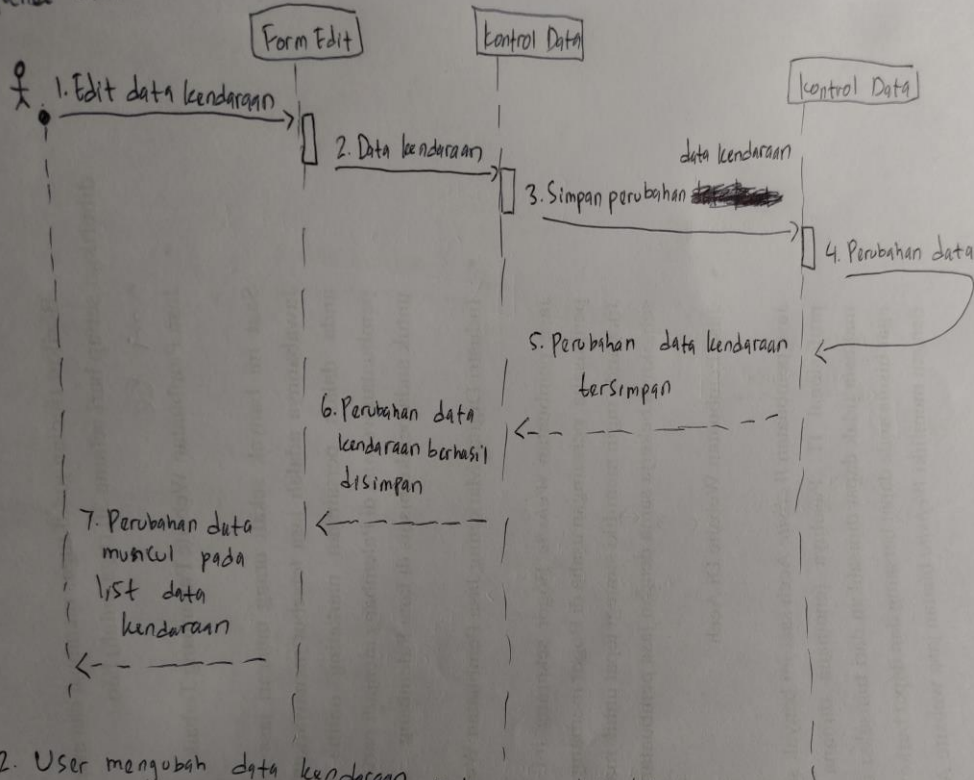 Form Edit
Kontrol Data
Kontrol Data
1. Edit data kendaraan
2. Data kendaraan
data kendaraan
3. Simpan perubahan
4. Perubahan data
5. Perubahan data kendaraan
tersimpan
6. Perubahan data
kendaraan berhasil
disimpan
7. Perubahan data
muncul pada
list data
kendaraan
2. User mengubah data kendaraan